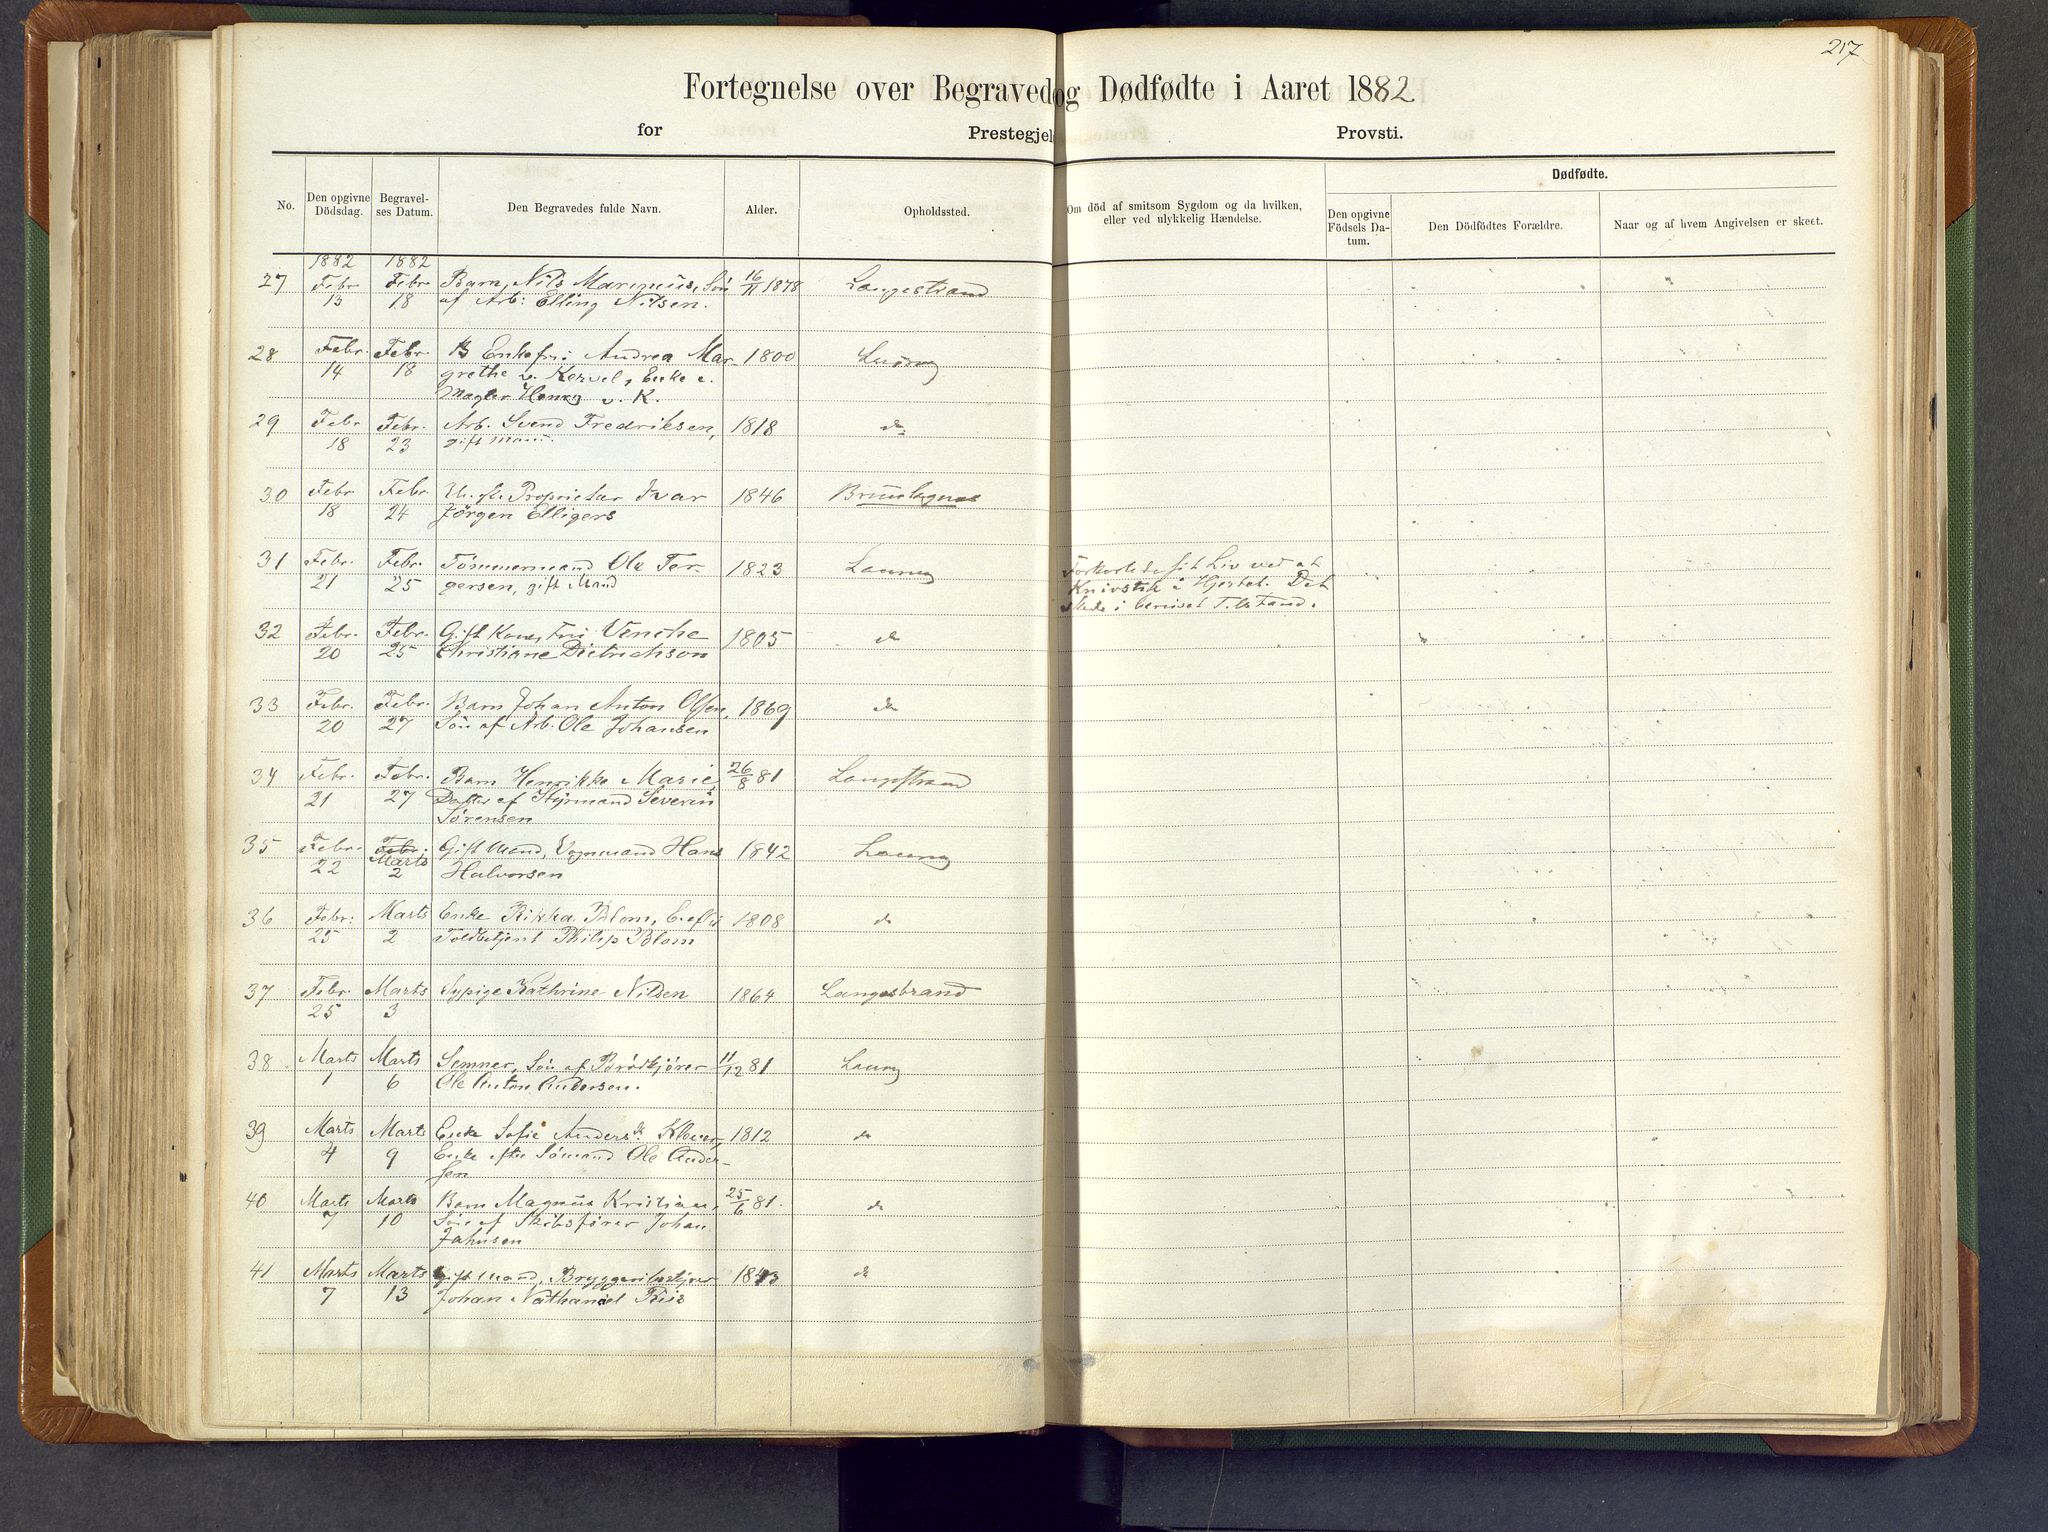 217
Fortegnelse over Begravede og Dødfødte i Aaret 1882
for Prestegjeld Provsti.
No. Den opgivne Dödsdag. Begravelses Datum. Den Begravedes fulde Navn. Alder. Opholdssted. Om död af smitsom Sygdom og da hvilken, eller ved ulykkelig Hændelse. Dødfødte. Den opgivne Födsels Datum. Den Dödfödtes Forældre. Naar og af hvem Angivelsen er skeet.
1882 1882
27 Febr Febr Barn, Nils Marinius, Sön 16/11 1878 Langestrand
13 18 af Arb: Elling Nilsen.
28 Febr. Febr. Enkefru Andrea Mar- 1800 Laurvig
14 18 grethe v. Kervel, Enke e.
Mægler Henry v. K.
29 Febr Febr. Arb. Svend Fredriksen, 1818 do
18 23 gift Mand.
30 Febr Febr. Proprietær Ivar 1846 Brunlagnæs
18 24 Jørgen Elligers
31 Febr. Febr. Tömmermand Ole Ter- 1823 Laurvig Forkortede sit Liv ved at
21 25 gersen, gift Mand Knivstik i Hjertet. Det
skede i beruset Tilstand.
32 Febr. Febr. Gift Kone, Fru Venche 1805 do
20 25 Christiane Dietrichson
33 Febr. Febr. Barn Johan Anton Olsen, 1869 do
20 27 Sön af Arb. Ole Johansen
34 Febr. Febr. Barn Henrikke Marie, 26/8 81 Langestrand
21 27 Datter af Styrmand Severin
Sørensen
35 Febr. Febr. Gift Mand, Vognmand Hans 1842 Laurvig
22 Marts 2 Halvorsen
36 Febr: Marts Enke Rikka Blom, E. efter 1808 do
25 2 Toldbetjent Philip Blom
37 Febr. Marts Sypige Kathrine Nilsen 1864 Langestrand
25 3
38 Marts Marts Semner, Sön af Brödkjører 11/12 81 Laurvig
1 6 Ole Anton Andersen.
39 Marts Marts Enke Sofie Andersdr. Klover 1812 do
4 9 Enke efter Sömand Ole Ander-
sen
40 Marts Marts Barn Magnus Kristian, 25/6 81. do
7 10 Sön af Skibsfører Johan
Jahnsen
41 Marts Marts Gift Mand, Bryggeribestyrer 1843 do
7 13 Johan Nathaniel Riis